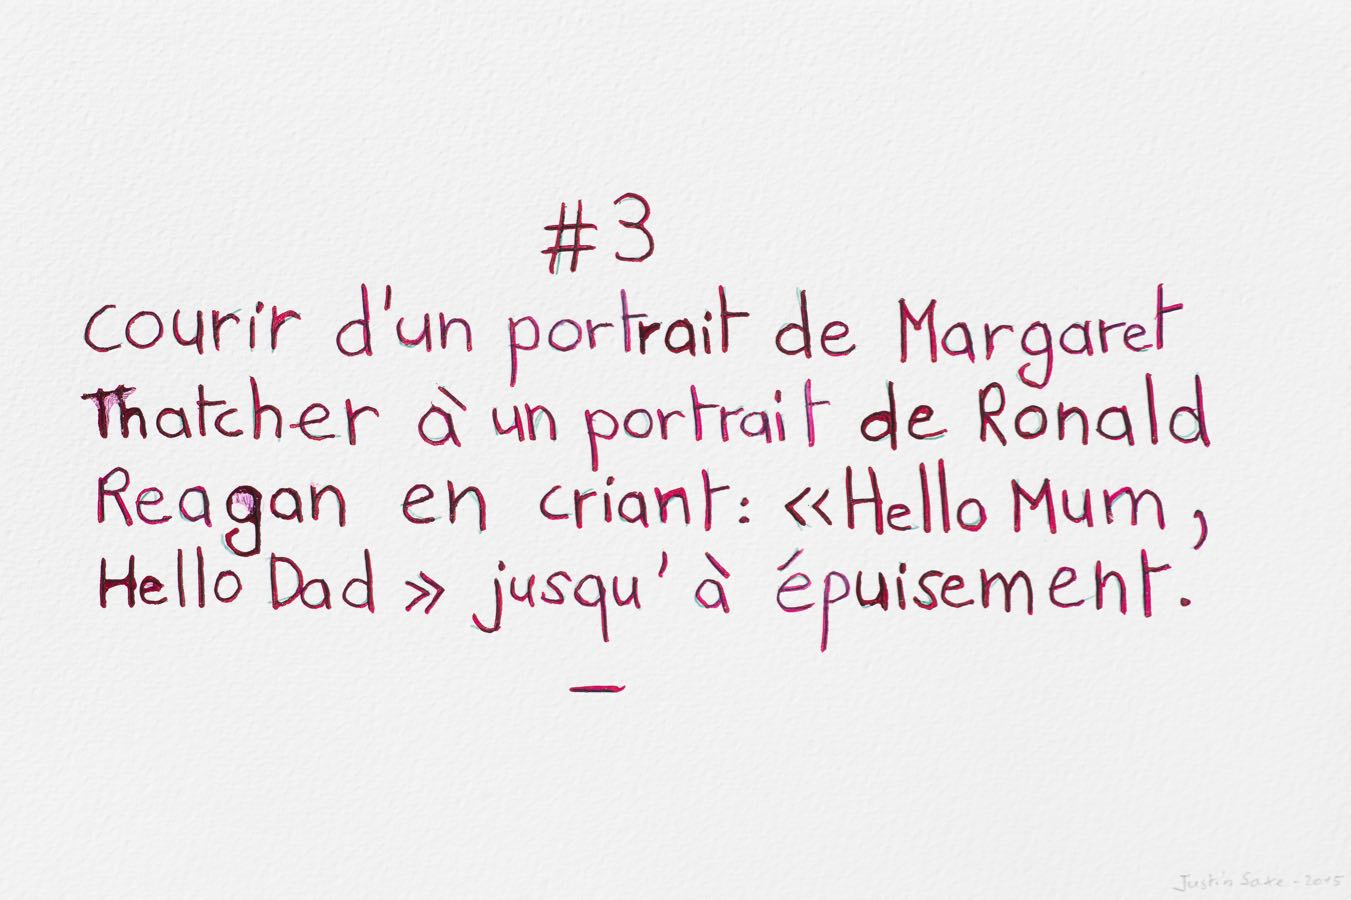 #3
Courir d'un portrait de Margaret
Thatcher à un portrait de Ronald
Reagan en criant : «Hello Mum,
Hello Dad » jusqu'à épuisement.
—
Justin Saxe - 2015